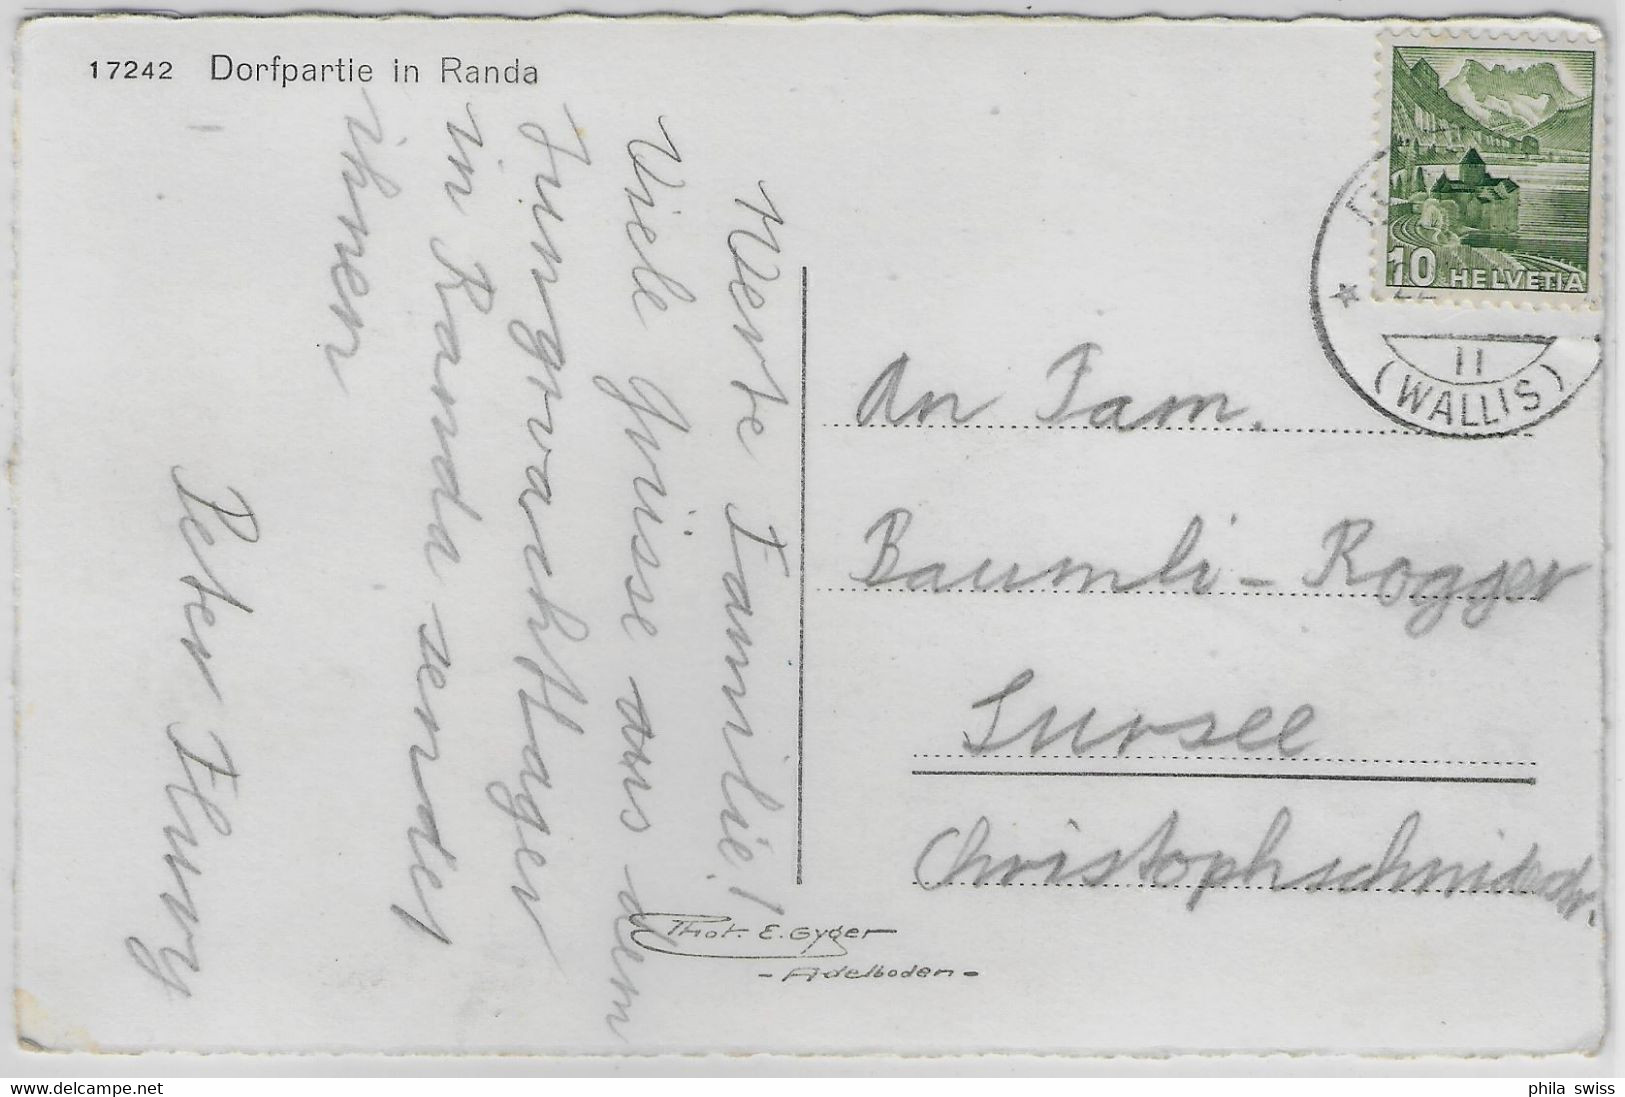 17242 Dorfpartie in Randa
Werte Familie!
Viele Grüsse aus dem
Jungwachtlager
in Randa sendet
ihnen
Peter Flury
10 HELVETIA
II
(WALLIS)
An Fam.
Baumli - Rogger
Sursee
Phot. E. Gyger
- Adelboden -
delcampe.net
phila swiss